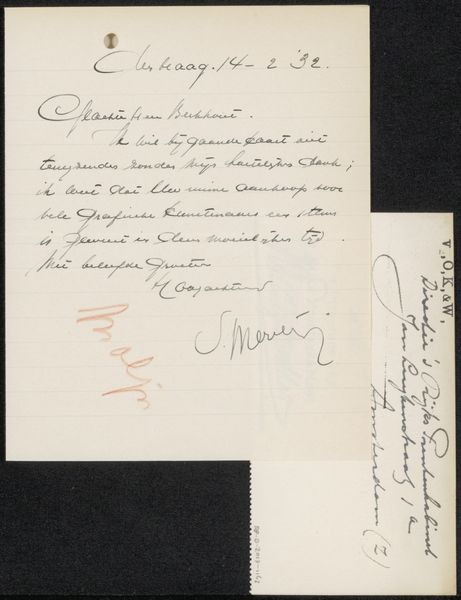 den Haag. 14 - 2 '32.
Geachte Heer Berkhout.
Ik wil bij gaande kaart niet
terugzenden zonder mijn hartelijken dank;
ik weet dat Uw aankoop voor
vele Grafische Kunstenaars een steun
is geweest in dezen moeielijken tijd.
Met beleefde Groeten
Hoogachtend
S. Moulijn
Moulijn
V., O., K. & W.
Directie 's Rijks Prentenkabinet
Jan Luykenstraat 1a
Amsterdam (Z)